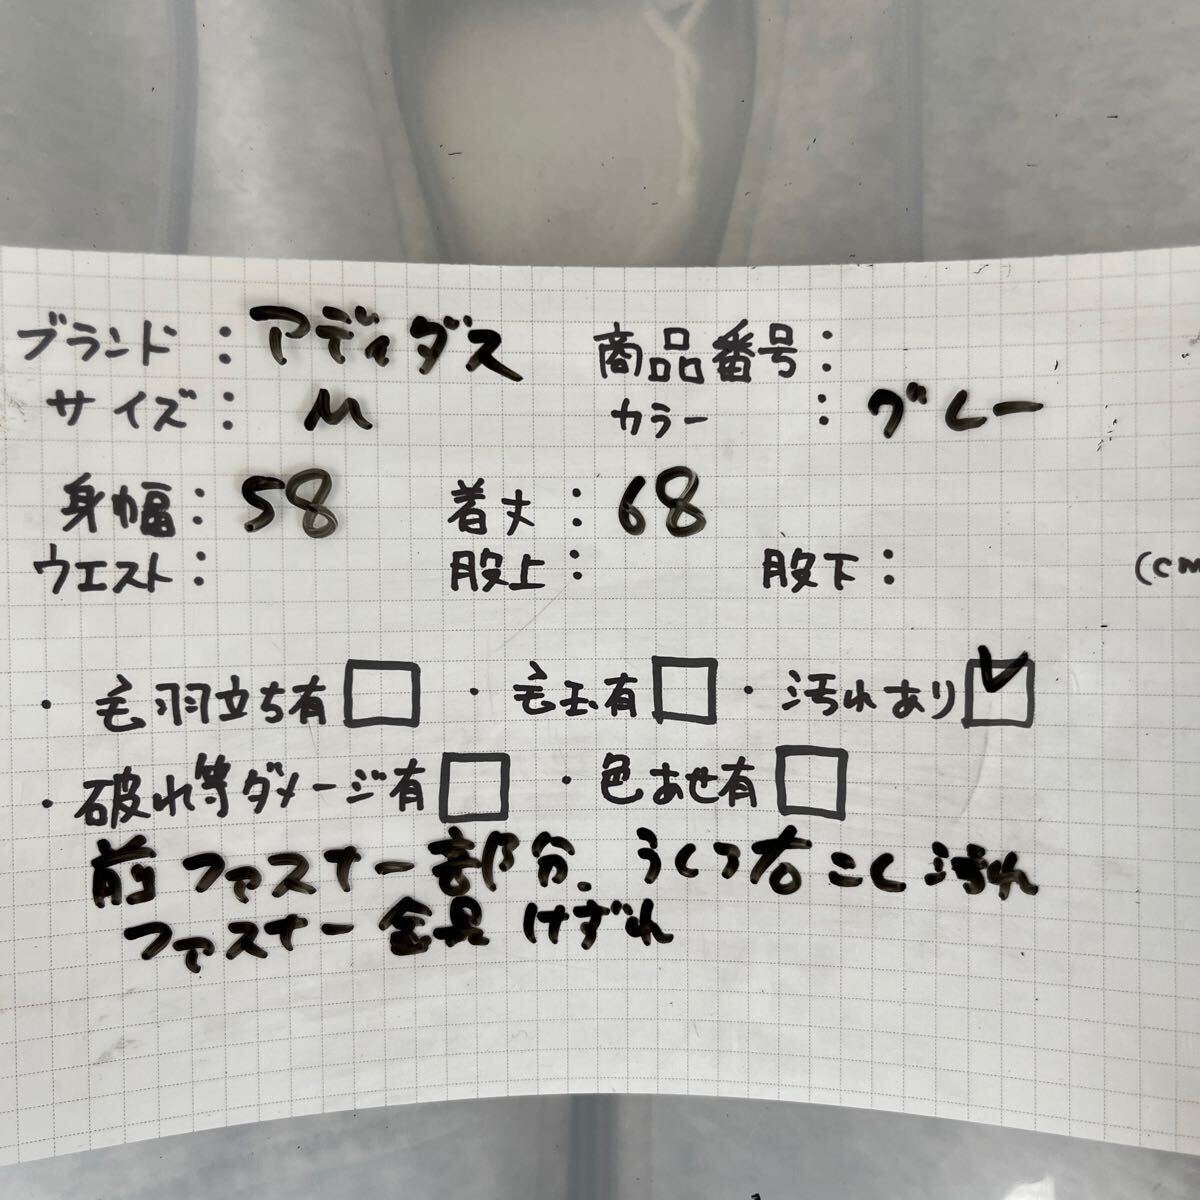 ブランド : アディダス 商品番号:
サイズ: M カラー : グレー
身幅: 58 着丈 : 68
ウエスト: 股上: 股下: (cm
・毛羽立ち有 ・毛玉有 ・汚れあり
・破れ等ダメージ有 ・色あせ有
前ファスナー部分. うしろ右こし汚れ
ファスナー金具けずれ